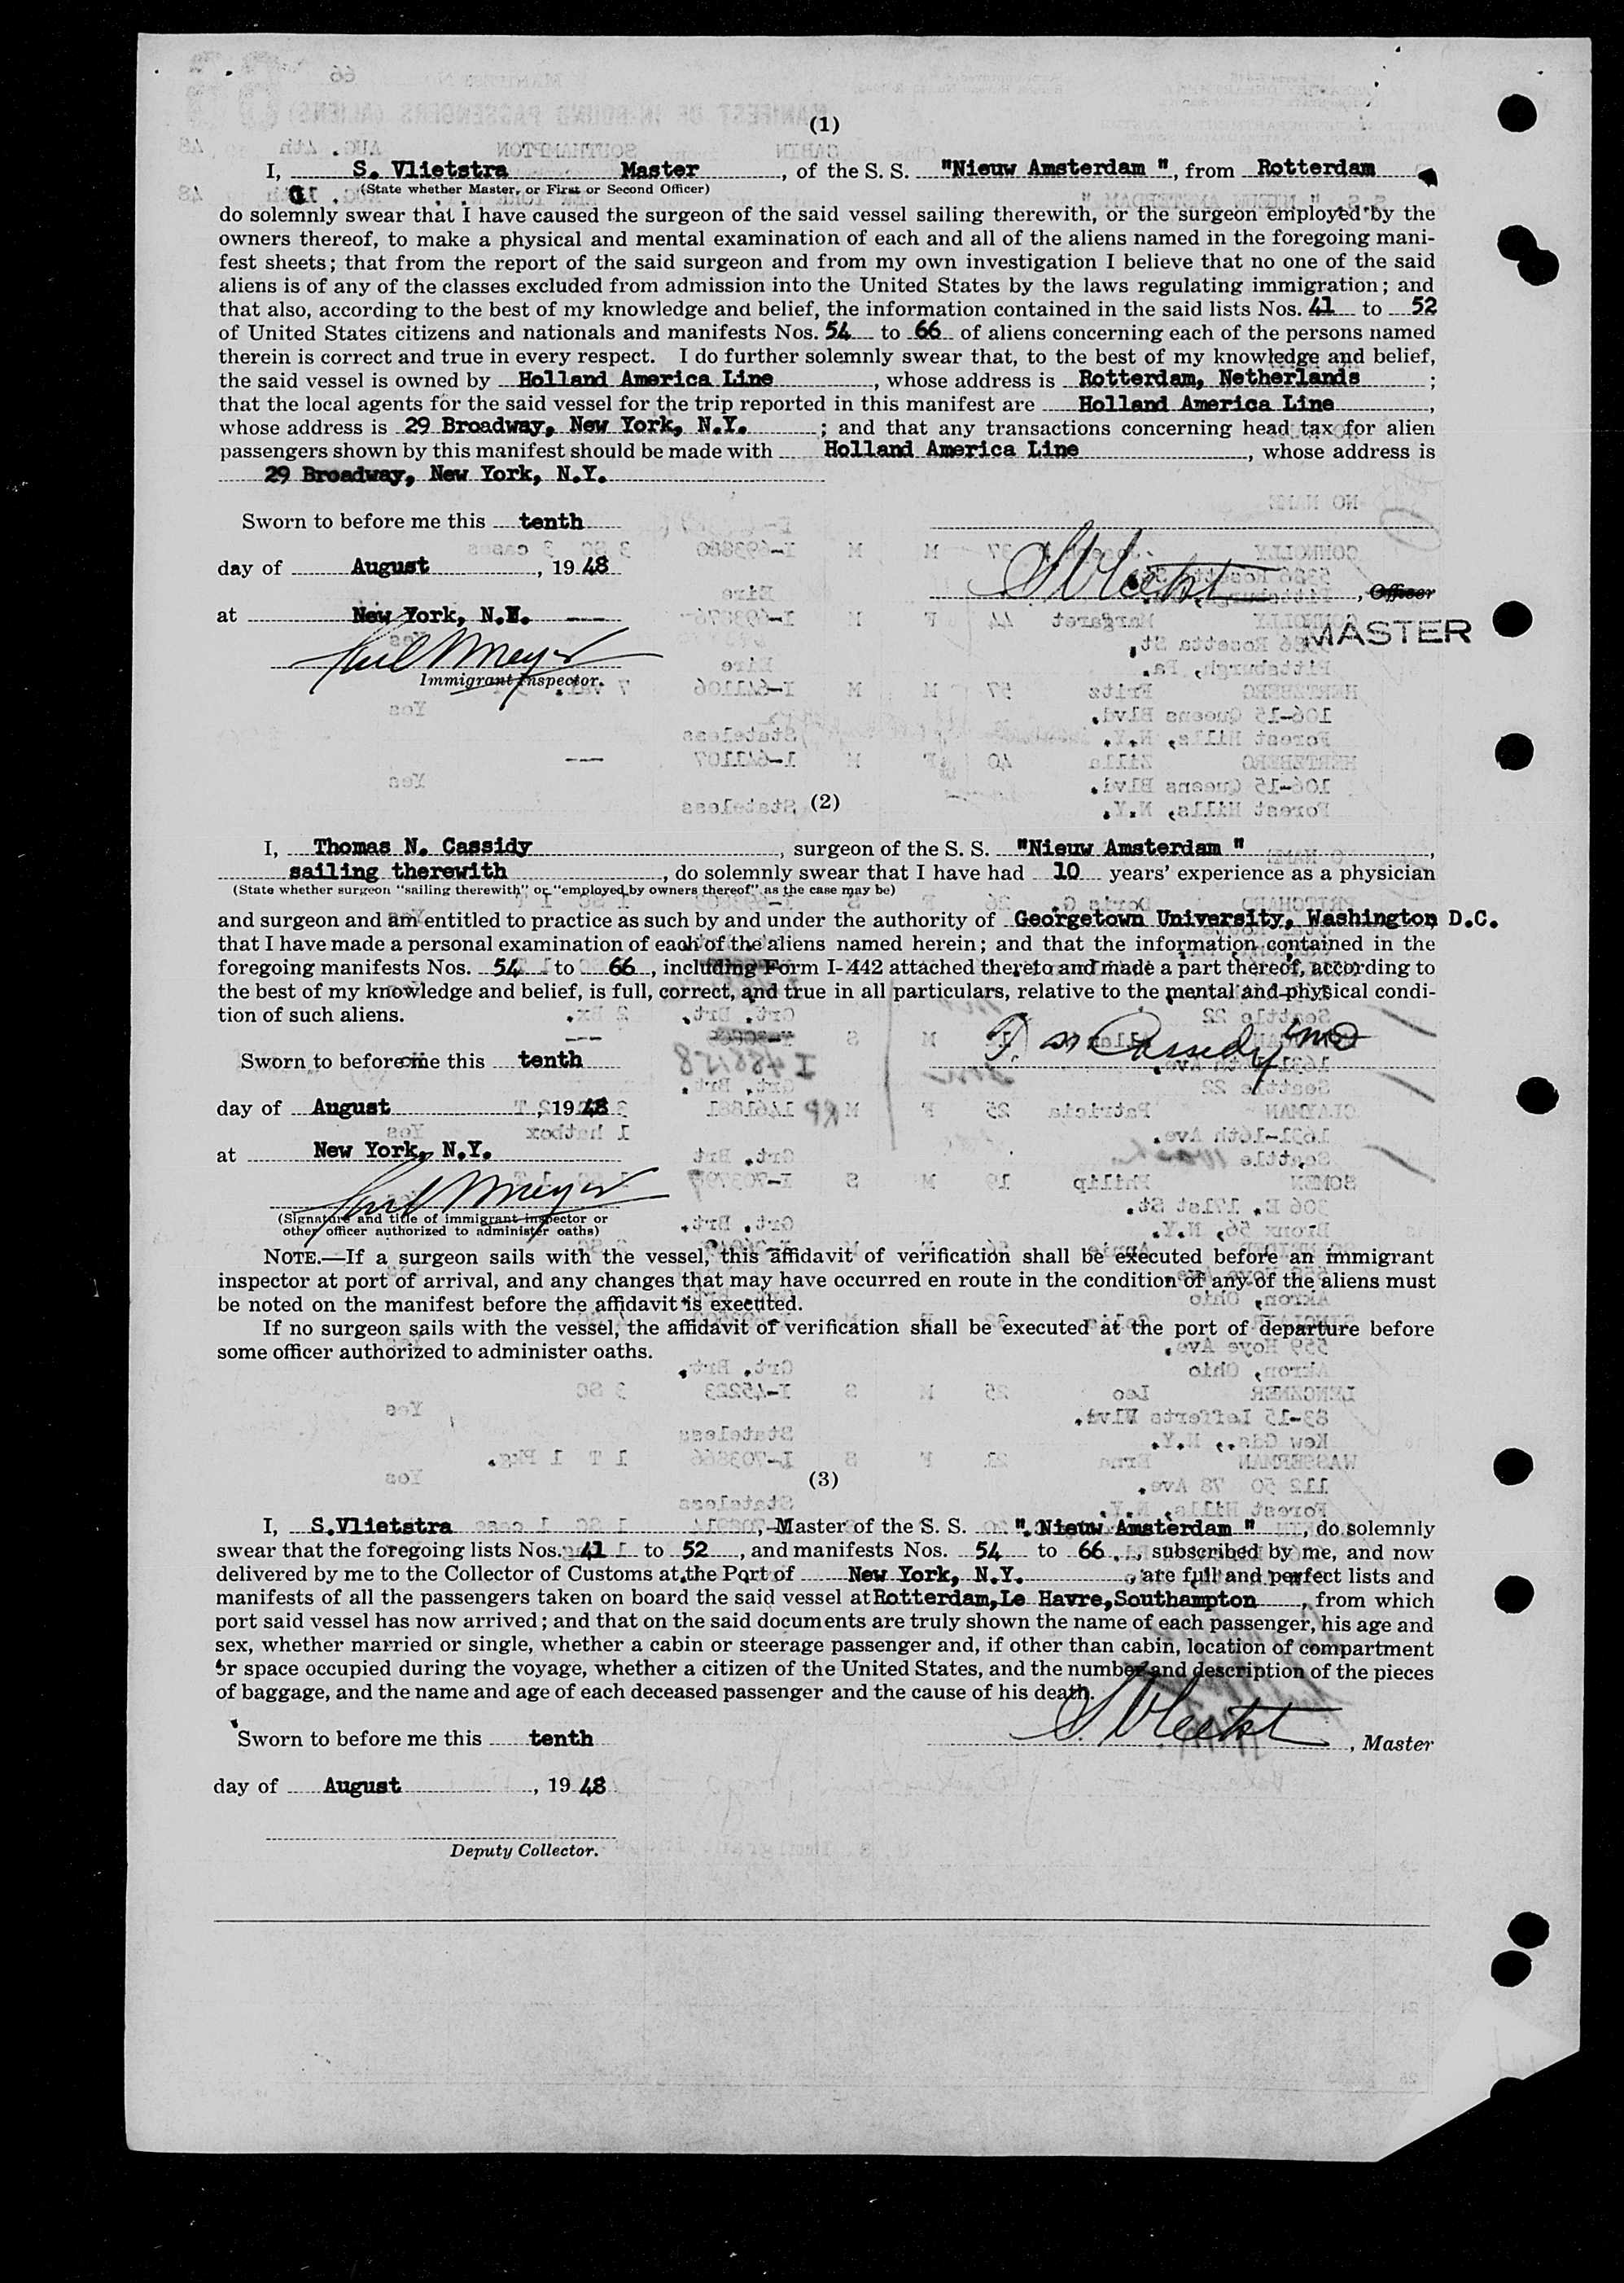 (1)
I, S. Vlietstra Master, of the S. S. "Nieuw Amsterdam ", from Rotterdam
(State whether Master, or First or Second Officer)
do solemnly swear that I have caused the surgeon of the said vessel sailing therewith, or the surgeon employed by the
owners thereof, to make a physical and mental examination of each and all of the aliens named in the foregoing mani-
fest sheets; that from the report of the said surgeon and from my own investigation I believe that no one of the said
aliens is of any of the classes excluded from admission into the United States by the laws regulating immigration; and
that also, according to the best of my knowledge and belief, the information contained in the said lists Nos. 41 to 52
of United States citizens and nationals and manifests Nos. 54 to 66 of aliens concerning each of the persons named
therein is correct and true in every respect. I do further solemnly swear that, to the best of my knowledge and belief,
the said vessel is owned by Holland America Line, whose address is Rotterdam, Netherlands;
that the local agents for the said vessel for the trip reported in this manifest are Holland America Line,
whose address is 29 Broadway, New York, N.Y.; and that any transactions concerning head tax for alien
passengers shown by this manifest should be made with Holland America Line, whose address is
29 Broadway, New York, N.Y.
Sworn to before me this tenth
day of August, 1948
, Officer
at New York, N.Y.
MASTER
Immigrant Inspector.
(2)
I, Thomas N. Cassidy, surgeon of the S. S. "Nieuw Amsterdam ",
sailing therewith, do solemnly swear that I have had 10 years' experience as a physician
(State whether surgeon "sailing therewith" or "employed by owners thereof" as the case may be)
and surgeon and am entitled to practice as such by and under the authority of Georgetown University, Washington D.C.
that I have made a personal examination of each of the aliens named herein; and that the information contained in the
foregoing manifests Nos. 54 to 66, including Form I-442 attached thereto and made a part thereof, according to
the best of my knowledge and belief, is full, correct, and true in all particulars, relative to the mental and physical condi-
tion of such aliens.
T. N Cassidy MD
Sworn to before me this tenth
day of August, 1948
at New York, N.Y.
(Signature and title of immigrant inspector or
other officer authorized to administer oaths)
NOTE.—If a surgeon sails with the vessel, this affidavit of verification shall be executed before an immigrant
inspector at port of arrival, and any changes that may have occurred en route in the condition of any of the aliens must
be noted on the manifest before the affidavit is executed.
If no surgeon sails with the vessel, the affidavit of verification shall be executed at the port of departure before
some officer authorized to administer oaths.
(3)
I, S.Vlietstra, Master of the S. S. " Nieuw Amsterdam ", do solemnly
swear that the foregoing lists Nos. 41 to 52, and manifests Nos. 54 to 66, subscribed by me, and now
delivered by me to the Collector of Customs at the Port of New York, N.Y., are full and perfect lists and
manifests of all the passengers taken on board the said vessel at Rotterdam,Le Havre,Southampton, from which
port said vessel has now arrived; and that on the said documents are truly shown the name of each passenger, his age and
sex, whether married or single, whether a cabin or steerage passenger and, if other than cabin, location of compartment
or space occupied during the voyage, whether a citizen of the United States, and the number and description of the pieces
of baggage, and the name and age of each deceased passenger and the cause of his death.
Sworn to before me this tenth
, Master
day of August, 1948
Deputy Collector.